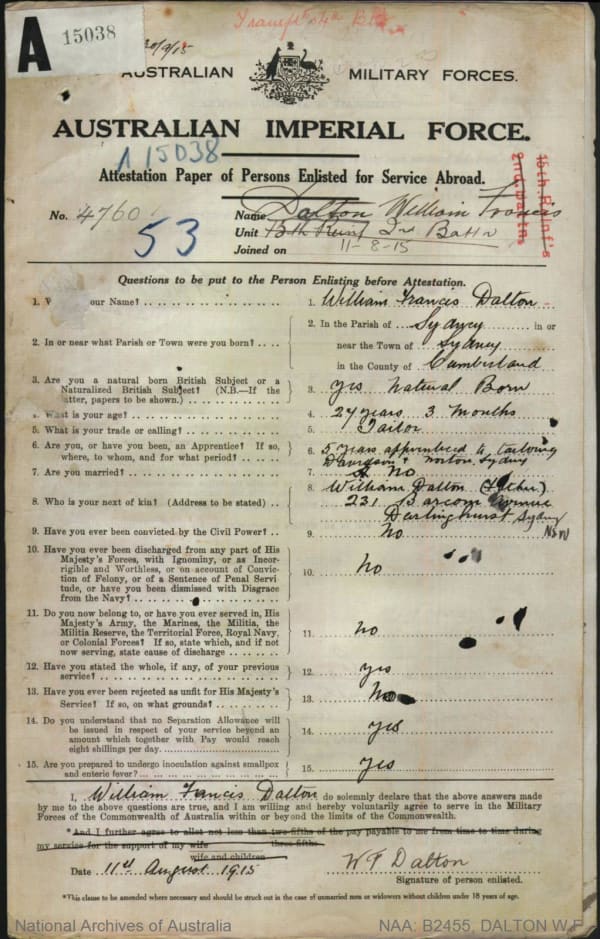 Transf to 4th Btn
A 15038
30/9/15
AUSTRALIAN MILITARY FORCES.
AUSTRALIAN IMPERIAL FORCE.
A 15038
Attestation Paper of Persons Enlisted for Service Abroad.
15th Reinf's
2nd Battn
No. 4760
Name Dalton William Francis
53
Unit 15th Reinf 2nd Battn
Joined on 11-8-15
Questions to be put to the Person Enlisting before Attestation.
1. W our Name? 1. William Francis Dalton
2. In or near what Parish or Town were you born? 2. In the Parish of Sydney in or
near the Town of Sydney
in the County of Cumberland
3. Are you a natural born British Subject or a
Naturalized British Subject? (N.B.—If the
latter, papers to be shown.) 3. yes Natural Born
4. What is your age? 4. 24 years 3 Months
5. What is your trade or calling? 5. Tailor
6. Are you, or have you been, an Apprentice? If so,
where, to whom, and for what period? 6. 5 years apprenticed to tailoring
Norton Sydney
7. Are you married? 7. No
8. Who is your next of kin? (Address to be stated) 8. William Dalton (Father)
231 Barcom Avenue
Darlinghurst Sydney
NSW
9. Have you ever been convicted by the Civil Power? 9. No
10. Have you ever been discharged from any part of His
Majesty's Forces, with Ignominy, or as Incor-
rigible and Worthless, or on account of Convic-
tion of Felony, or of a Sentence of Penal Servi
tude, or have you been dismissed with Disgrace
from the Navy? 10. No
11. Do you now belong to, or have you ever served in, His
Majesty's Army, the Marines, the Militia, the
Militia Reserve, the Territorial Force, Royal Navy,
or Colonial Forces? If so, state which, and if not
now serving, state cause of discharge 11. no
12. Have you stated the whole, if any, of your previous
service? 12. yes
13. Have you ever been rejected as unfit for His Majesty's
Service? If so, on what grounds? 13. No
14. Do you understand that no Separation Allowance will
be issued in respect of your service beyond an
amount which together with Pay would reach
eight shillings per day. 14. yes
15. Are you prepared to undergo inoculation against smallpox
and enteric fever? 15. yes
I, William Francis Dalton do solemnly declare that the above answers made
by me to the above questions are true, and I am willing and hereby voluntarily agree to serve in the Military
Forces of the Commonwealth of Australia within or beyond the limits of the Commonwealth.
*And I further agree to allot not less than two-fifths of the pay payable to me from time to time during
my service for the support of my wife three-fifths
wife and children
Date 11th August 1915 W F Dalton
Signature of person enlisted.
*This clause to be amended where necessary and should be struck out in the case of unmarried men or widowers without children under 18 years of age.
National Archives of Australia NAA: B2455, DALTON W F